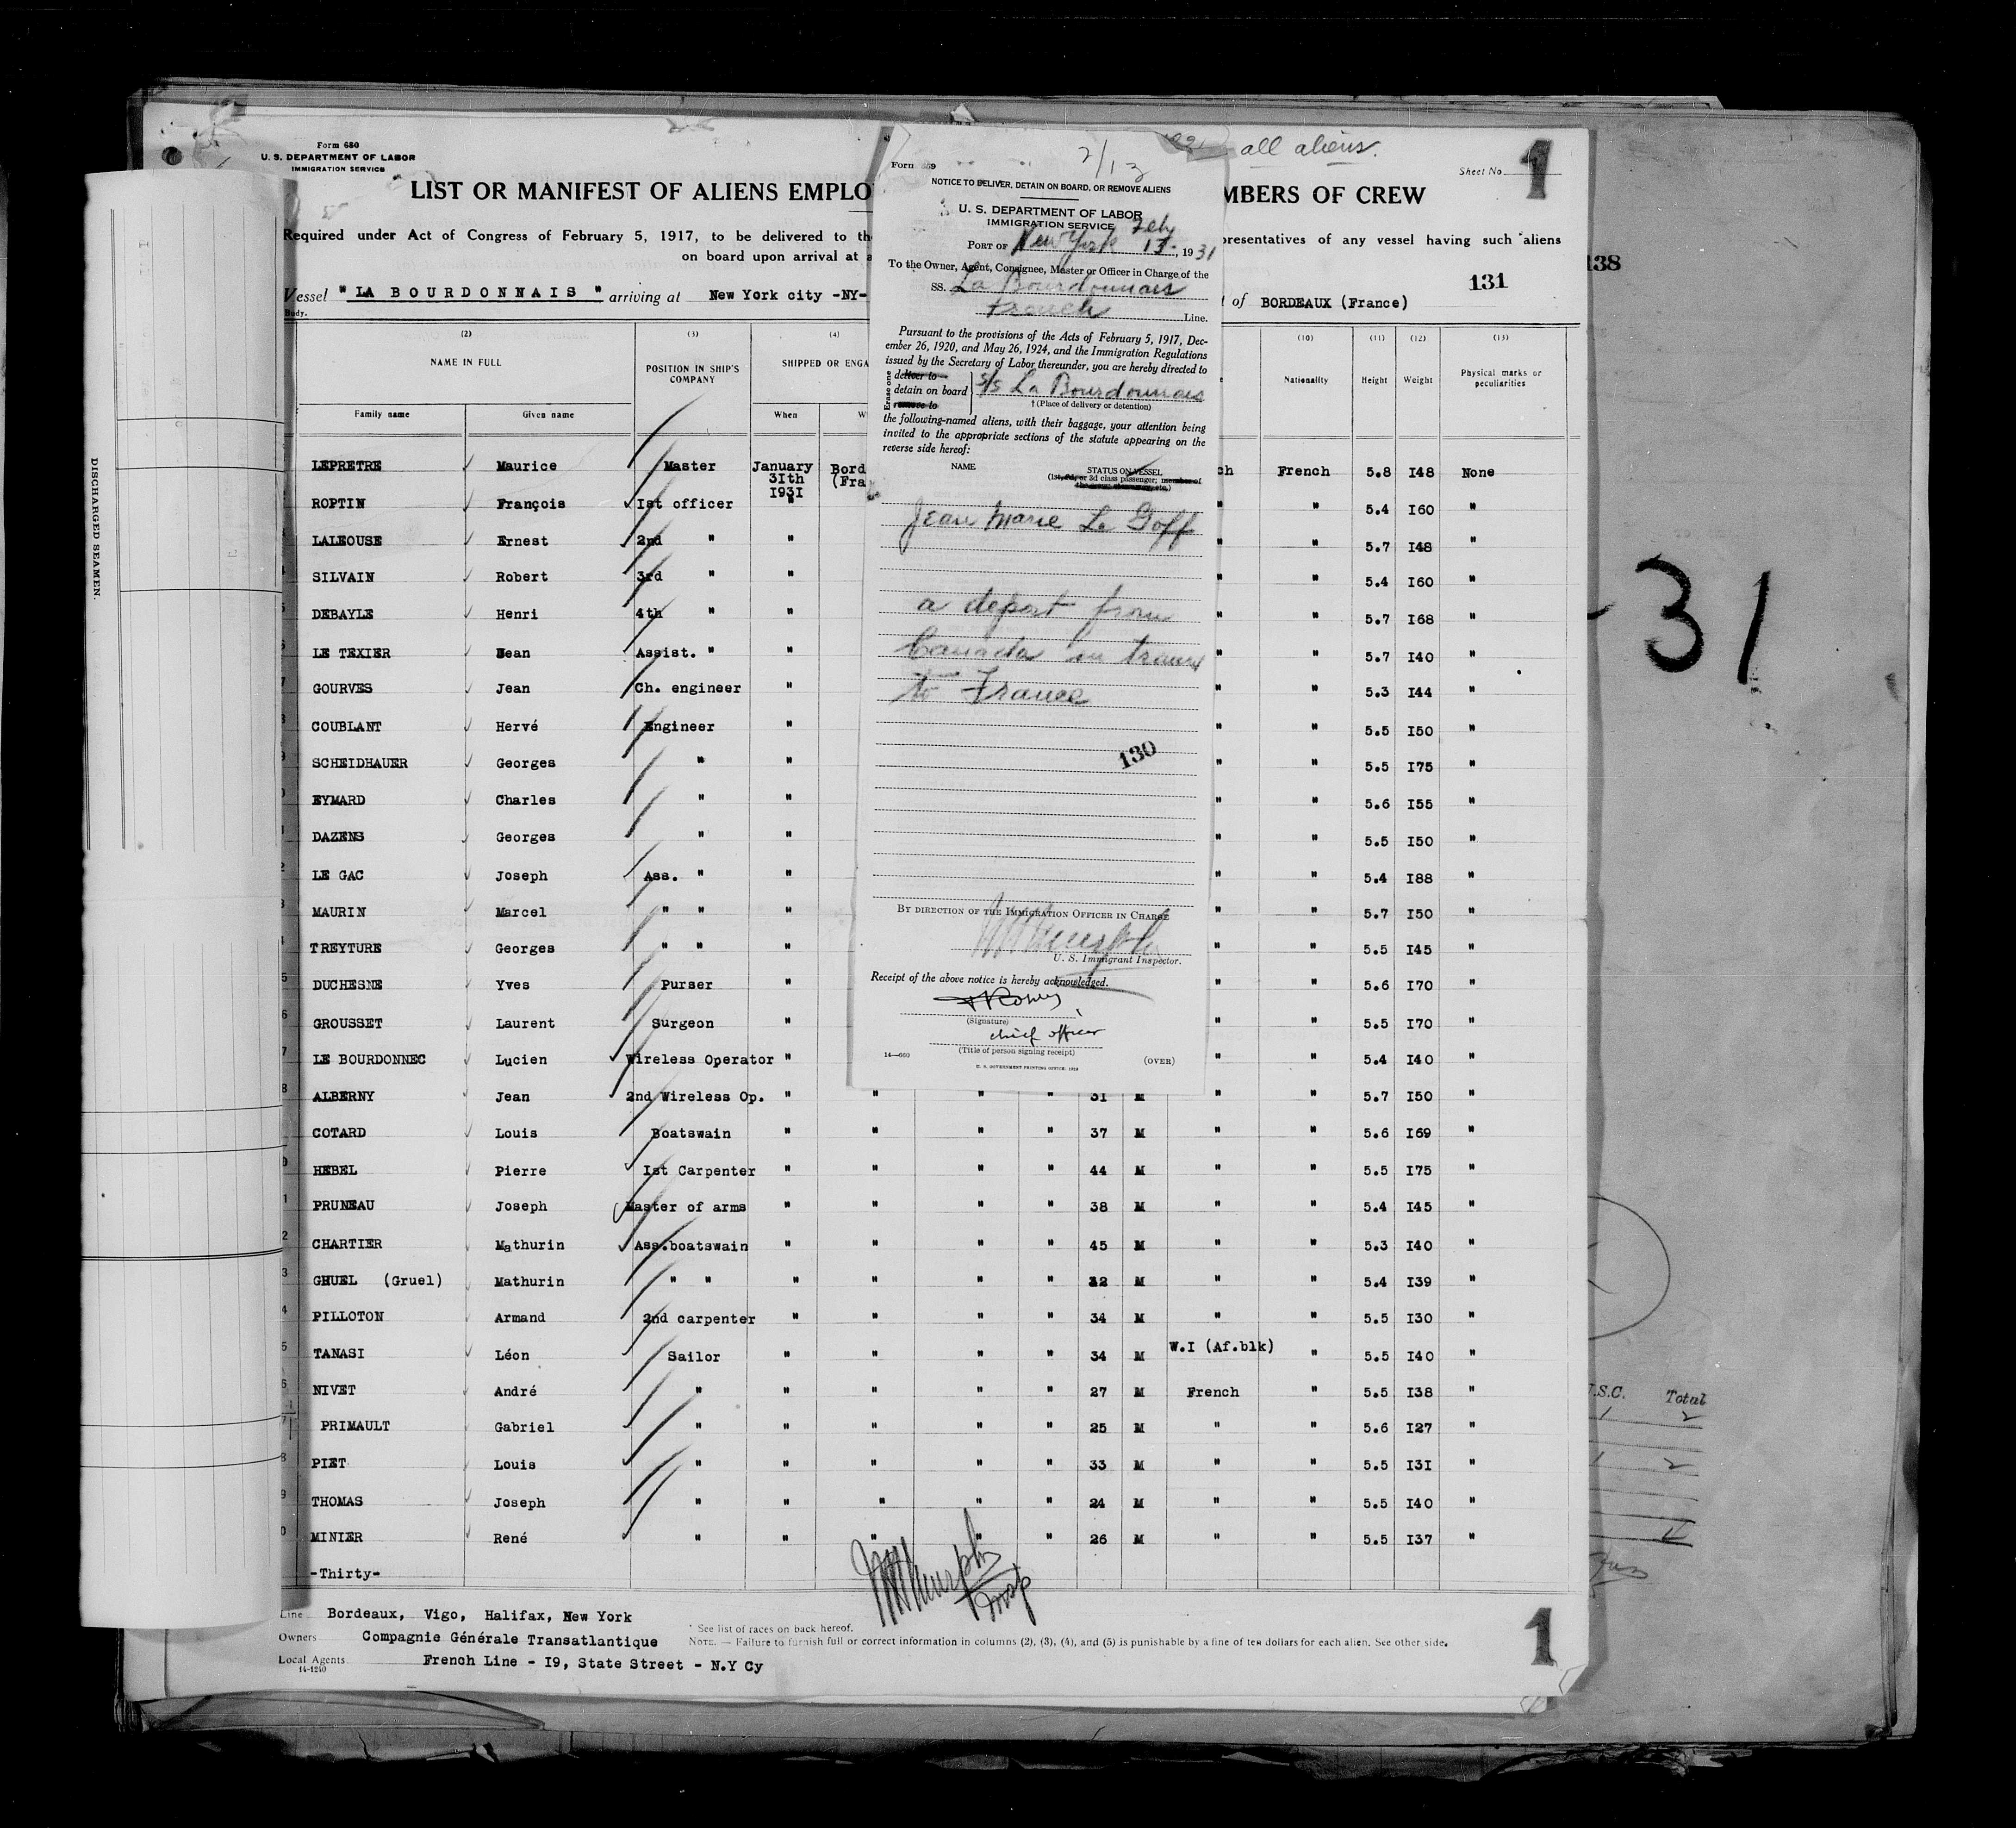 Form 680
U. S. DEPARTMENT OF LABOR
IMMIGRATION SERVICE
all aliens.
Sheet No
1
LIST OR MANIFEST OF ALIENS EMPLO
MBERS OF CREW
Required under Act of Congress of February 5, 1917, to be delivered to th
presentatives of any vessel having such aliens
on board upon arrival at a
138
131
Vessel " LA BOURDONNAIS " arriving at New York city -NY-
of BORDEAUX (France)
(2) (3) (4) (10) (11) (12) (13)
NAME IN FULL POSITION IN SHIP'S COMPANY SHIPPED OR ENGA Nationality Height Weight Physical marks or peculiarities
Family name Given name When W
LEPRETRE Maurice Master January 31th 1931 Bord (Fra ch French 5.8 148 None
ROPTIN François Ist officer " " " 5.4 I60 "
LALEOUSE Ernest 2nd " " " " 5.7 I48 "
SILVAIN Robert 3rd " " " " 5.4 I60 "
DEBAYLE Henri 4th " " " " 5.7 I68 "
LE TEXIER Jean Assist. " " " " 5.7 I40 "
GOURVES Jean Ch. engineer " " " 5.3 I44 "
COUBLANT Hervé Engineer " " " 5.5 I50 "
SCHEIDHAUER Georges " " " " 5.5 I75 "
EYMARD Charles " " " " 5.6 I55 "
DAZENS Georges " " " " 5.5 I50 "
LE GAC Joseph Ass. " " " " 5.4 I88 "
MAURIN Marcel " " " " " 5.7 I50 "
TREYTURE Georges " " " " " 5.5 I45 "
DUCHESNE Yves Purser " " " 5.6 I70 "
GROUSSET Laurent Surgeon " " " 5.5 I70 "
LE BOURDONNEC Lucien Wireless Operator " " " 5.4 I40 "
ALBERNY Jean 2nd Wireless Op. " " " " 31 M " " 5.7 I50 "
COTARD Louis Boatswain " " " " 37 M " " 5.6 I69 "
HEBEL Pierre Ist Carpenter " " " " 44 M " " 5.5 I75 "
PRUNEAU Joseph Master of arms " " " " 38 M " " 5.4 I45 "
CHARTIER Mathurin Ass.boatswain " " " " 45 M " " 5.3 I40 "
GRUEL (Gruel) Mathurin " " " " " " 32 M " " 5.4 I39 "
PILLOTON Armand 2nd carpenter " " " " 34 M " " 5.5 I30 "
TANASI Léon Sailor " " " " 34 M W.I (Af.blk) " 5.5 I40 "
NIVET André " " " " " 27 M French " 5.5 I38 "
PRIMAULT Gabriel " " " " " 25 M " " 5.6 I27 "
PIET Louis " " " " " 33 M " " 5.5 I3I "
THOMAS Joseph " " " " " 24 M " " 5.5 I40 "
MINIER René " " " " " 26 M " " 5.5 I37 "
-Thirty-
Line Bordeaux, Vigo, Halifax, New York
Owners Compagnie Générale Transatlantique
Local Agents French Line - I9, State Street - N.Y Cy
14-1240
* See list of races on back hereof.
NOTE. — Failure to furnish full or correct information in columns (2), (3), (4), and (5) is punishable by a fine of ten dollars for each alien. See other side.
1
2/13
Form 689
NOTICE TO DELIVER, DETAIN ON BOARD, OR REMOVE ALIENS
U. S. DEPARTMENT OF LABOR
IMMIGRATION SERVICE
PORT OF New York Feby 13, 1931
To the Owner, Agent, Consignee, Master or Officer in Charge of the
SS. La Bourdonnais
French Line.
Pursuant to the provisions of the Acts of February 5, 1917, Dec-
ember 26, 1920, and May 26, 1924, and the Immigration Regulations
issued by the Secretary of Labor thereunder, you are hereby directed to
Erase one
deliver to
detain on board S/S La Bourdonnais
remove to
† (Place of delivery or detention)
the following-named aliens, with their baggage, your attention being
invited to the appropriate sections of the statute appearing on the
reverse side hereof:
NAME STATUS ON VESSEL
(1st, 2d, or 3d class passenger; member of
Jean Marie Le Goff
a deport from
Canada in transit
to France
130
BY DIRECTION OF THE IMMIGRATION OFFICER IN CHARGE
U. S. Immigrant Inspector.
Receipt of the above notice is hereby acknowledged.
(Signature)
chief officer
(Title of person signing receipt)
14—660
(OVER)
U. S. GOVERNMENT PRINTING OFFICE: 1928
DISCHARGED SEAMEN.
31
U.S.C. Total
1 2
1 2
4